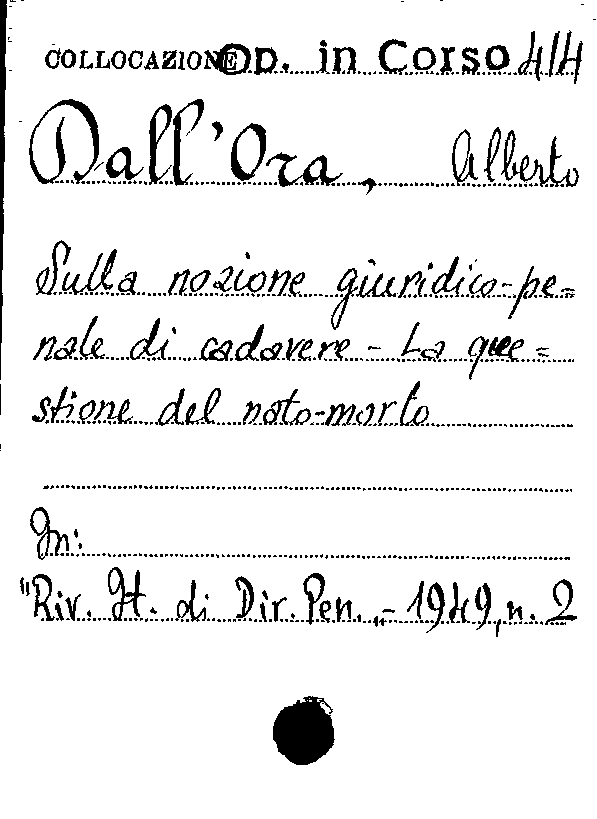 COLLOCAZIONE Op. in Corso 414
Dall'Ora, Alberto
Sulla nozione giuridico-pe=
nale di cadavere - La que=
stione del nato-morto
In:
"Riv. It. di Dir. Pen. „ - 1949, n. 2